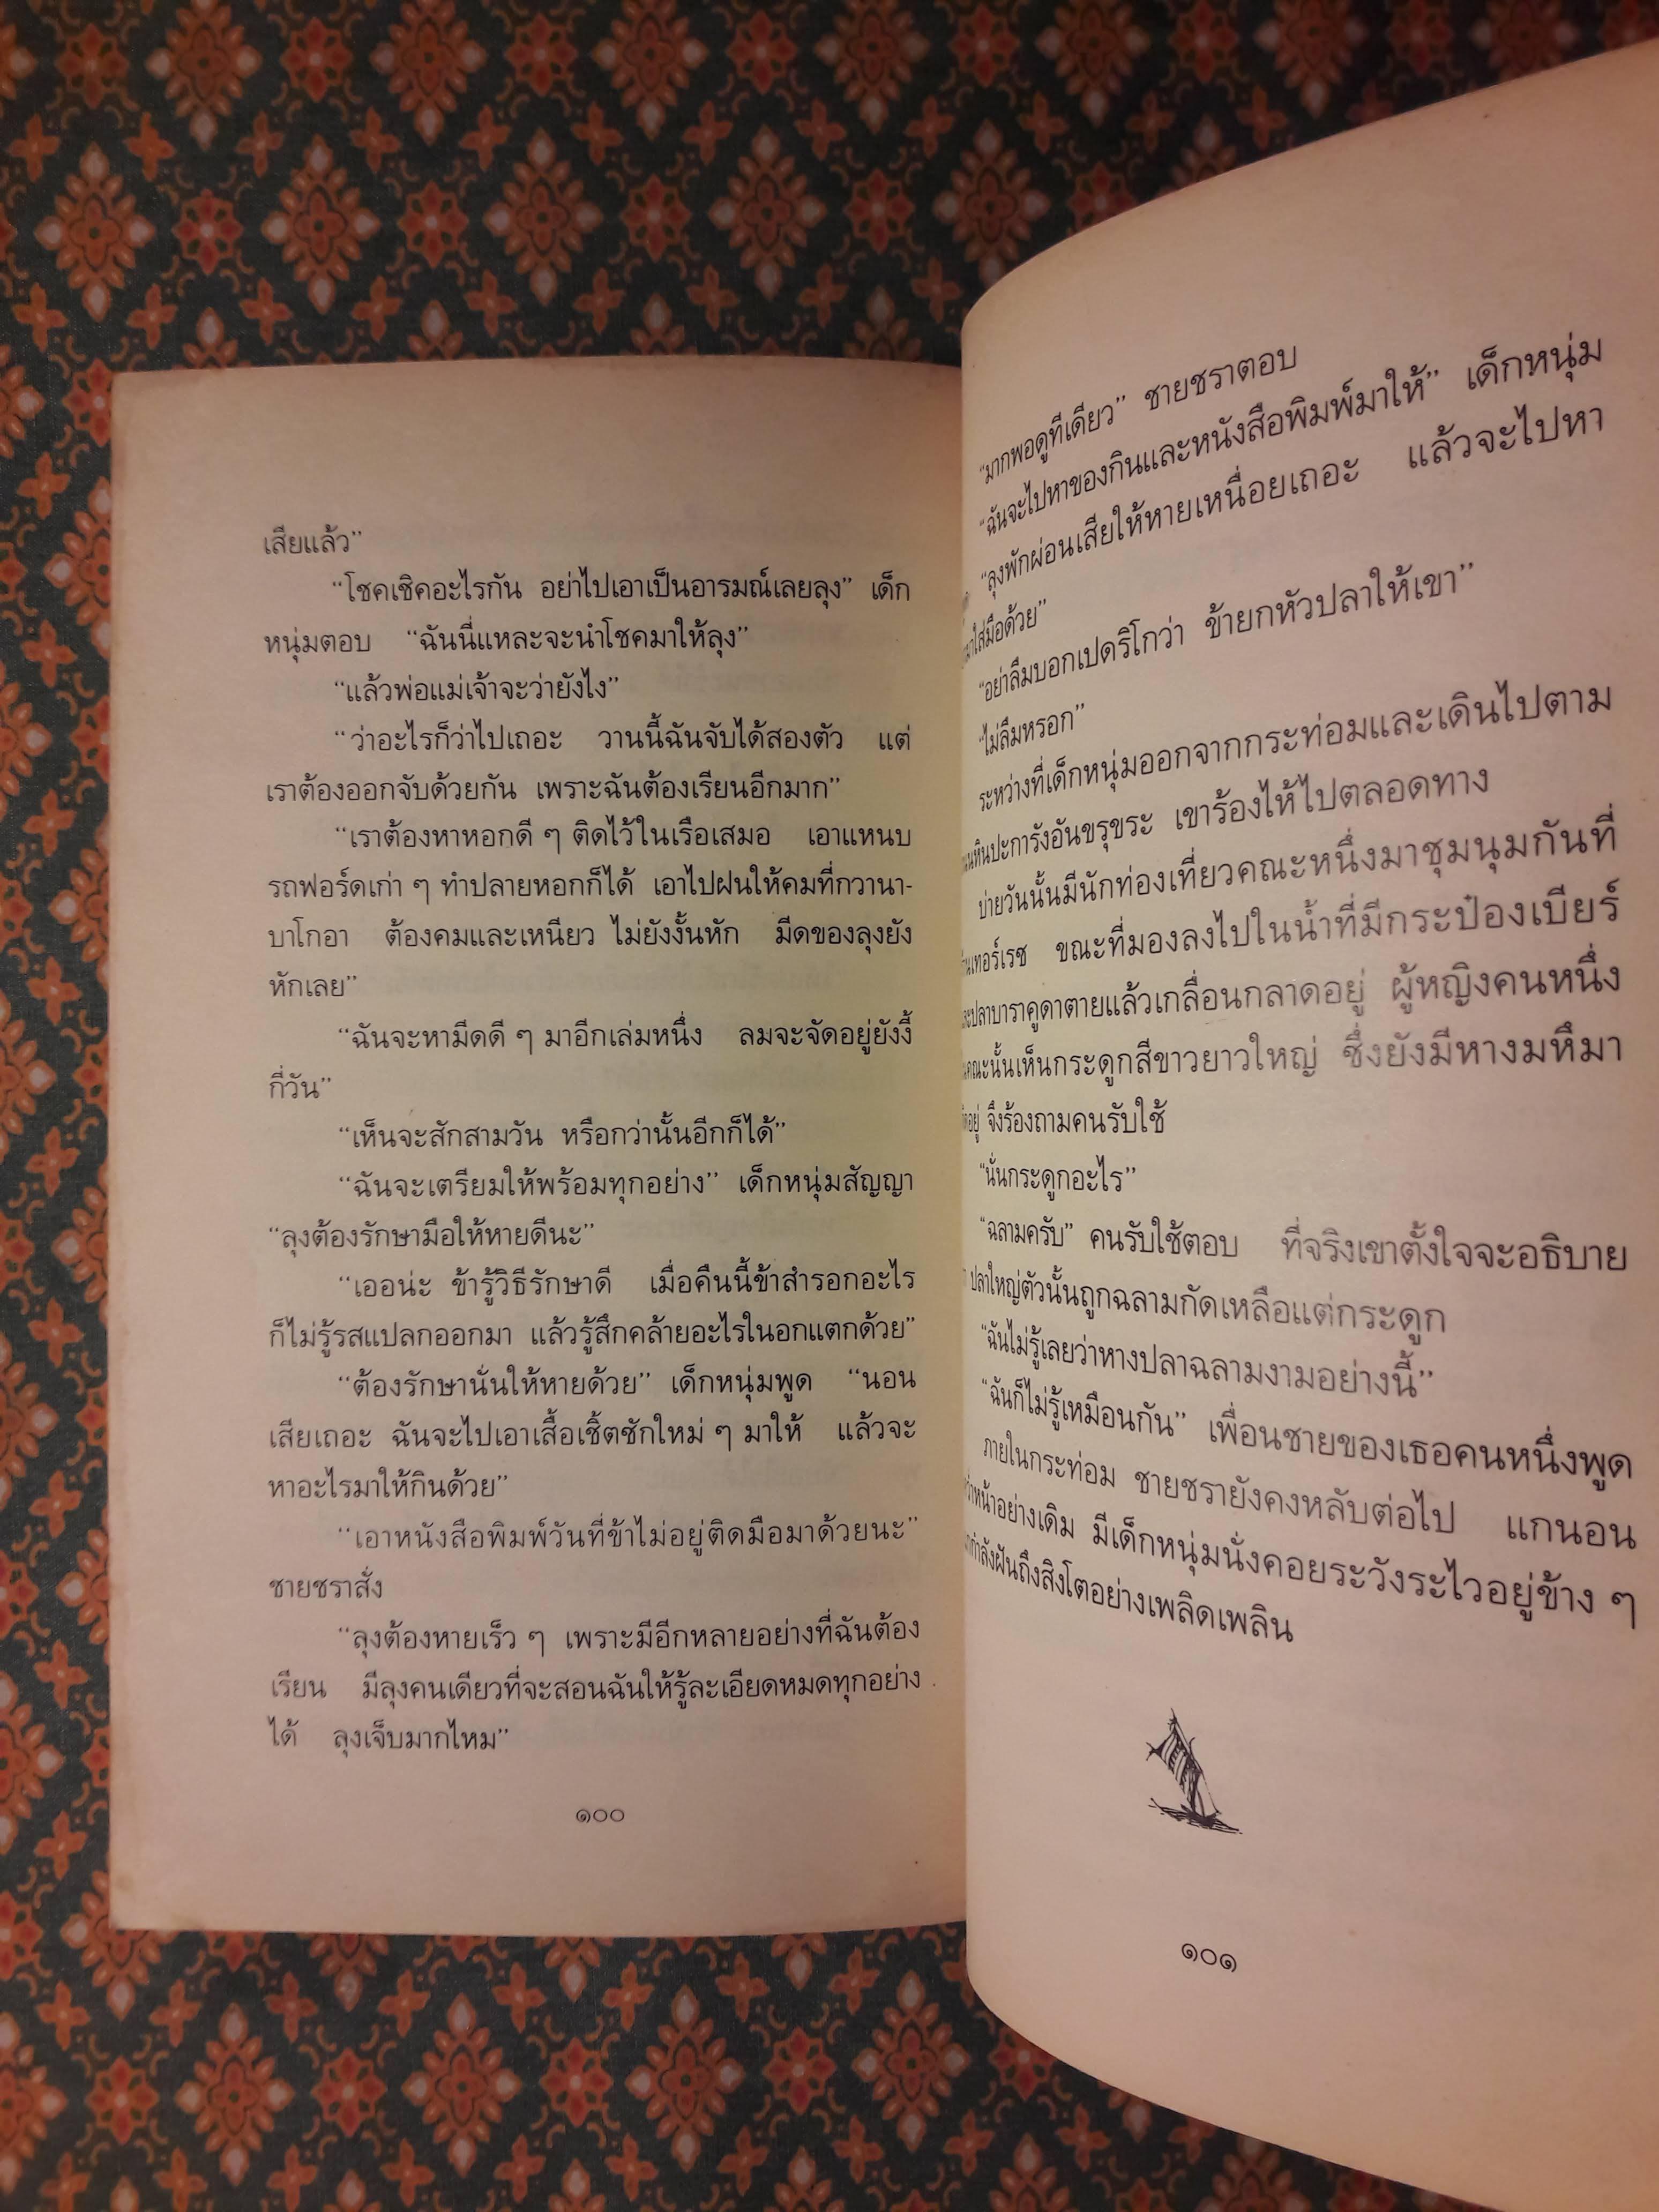 เสียแล้ว”
“โชคเชิคอะไรกัน อย่าไปเอาเป็นอารมณ์เลยลุง” เด็ก
หนุ่มตอบ “ฉันนี่แหละจะนำโชคมาให้ลุง”
“แล้วพ่อแม่เจ้าจะว่ายังไง”
“ว่าอะไรก็ว่าไปเถอะ วานนี้ฉันจับได้สองตัว แต่
เราต้องออกจับด้วยกัน เพราะฉันต้องเรียนอีกมาก”
“เราต้องหาหอกดี ๆ ติดไว้ในเรือเสมอ เอาแหนบ
รถฟอร์ดเก่า ๆ ทำปลายหอกก็ได้ เอาไปฝนให้คมที่กวานา-
บาโกอา ต้องคมและเหนียว ไม่ยังงั้นหัก มีดของลุงยัง
หักเลย”
“ฉันจะหามีดดี ๆ มาอีกเล่มหนึ่ง ลมจะจัดอยู่ยังงี้
กี่วัน”
“เห็นจะสักสามวัน หรือกว่านั้นอีกก็ได้”
“ฉันจะเตรียมให้พร้อมทุกอย่าง” เด็กหนุ่มสัญญา
“ลุงต้องรักษามือให้หายดีนะ”
“เออน่ะ ข้ารู้วิธีรักษาดี เมื่อคืนนี้ข้าสำรอกอะไร
ก็ไม่รู้รสแปลกออกมา แล้วรู้สึกคล้ายอะไรในอกแตกด้วย”
“ต้องรักษานั่นให้หายด้วย” เด็กหนุ่มพูด “นอน
เสียเถอะ ฉันจะไปเอาเสื้อเชิ้ตซักใหม่ ๆ มาให้ แล้วจะ
หาอะไรมาให้กินด้วย”
“เอาหนังสือพิมพ์วันที่ข้าไม่อยู่ติดมือมาด้วยนะ”
ชายชราสั่ง
“ลุงต้องหายเร็ว ๆ เพราะมีอีกหลายอย่างที่ฉันต้อง
เรียน มีลุงคนเดียวที่จะสอนฉันให้รู้ละเอียดหมดทุกอย่าง
ได้ ลุงเจ็บมากไหม”
๑๐๐
“มากพอดูทีเดียว” ชายชราตอบ
“ฉันจะไปหาของกินและหนังสือพิมพ์มาให้” เด็กหนุ่ม
“ลุงพักผ่อนเสียให้หายเหนื่อยเถอะ แล้วจะไปหา
มาใส่มือด้วย”
“อย่าลืมบอกเปดริโกว่า ข้ายกหัวปลาให้เขา”
“ไม่ลืมหรอก”
ระหว่างที่เด็กหนุ่มออกจากกระท่อมและเดินไปตาม
หินปะการังอันขรุขระ เขาร้องไห้ไปตลอดทาง
บ่ายวันนั้นมีนักท่องเที่ยวคณะหนึ่งมาชุมนุมกันที่
เทอร์เรซ ขณะที่มองลงไปในน้ำที่มีกระป๋องเบียร์
ปลาบาราคูดาตายแล้วเกลื่อนกลาดอยู่ ผู้หญิงคนหนึ่ง
คณะนั้นเห็นกระดูกสีขาวยาวใหญ่ ซึ่งยังมีหางมหึมา
อยู่ จึงร้องถามคนรับใช้
“นั่นกระดูกอะไร”
“ฉลามครับ” คนรับใช้ตอบ ที่จริงเขาตั้งใจจะอธิบาย
ปลาใหญ่ตัวนั้นถูกฉลามกัดเหลือแต่กระดูก
“ฉันไม่รู้เลยว่าหางปลาฉลามงามอย่างนี้”
“ฉันก็ไม่รู้เหมือนกัน” เพื่อนชายของเธอคนหนึ่งพูด
ภายในกระท่อม ชายชรายังคงหลับต่อไป แกนอน
หน้าอย่างเดิม มีเด็กหนุ่มนั่งคอยระวังระไวอยู่ข้าง ๆ
กำลังฝันถึงสิงโตอย่างเพลิดเพลิน
๑๐๑